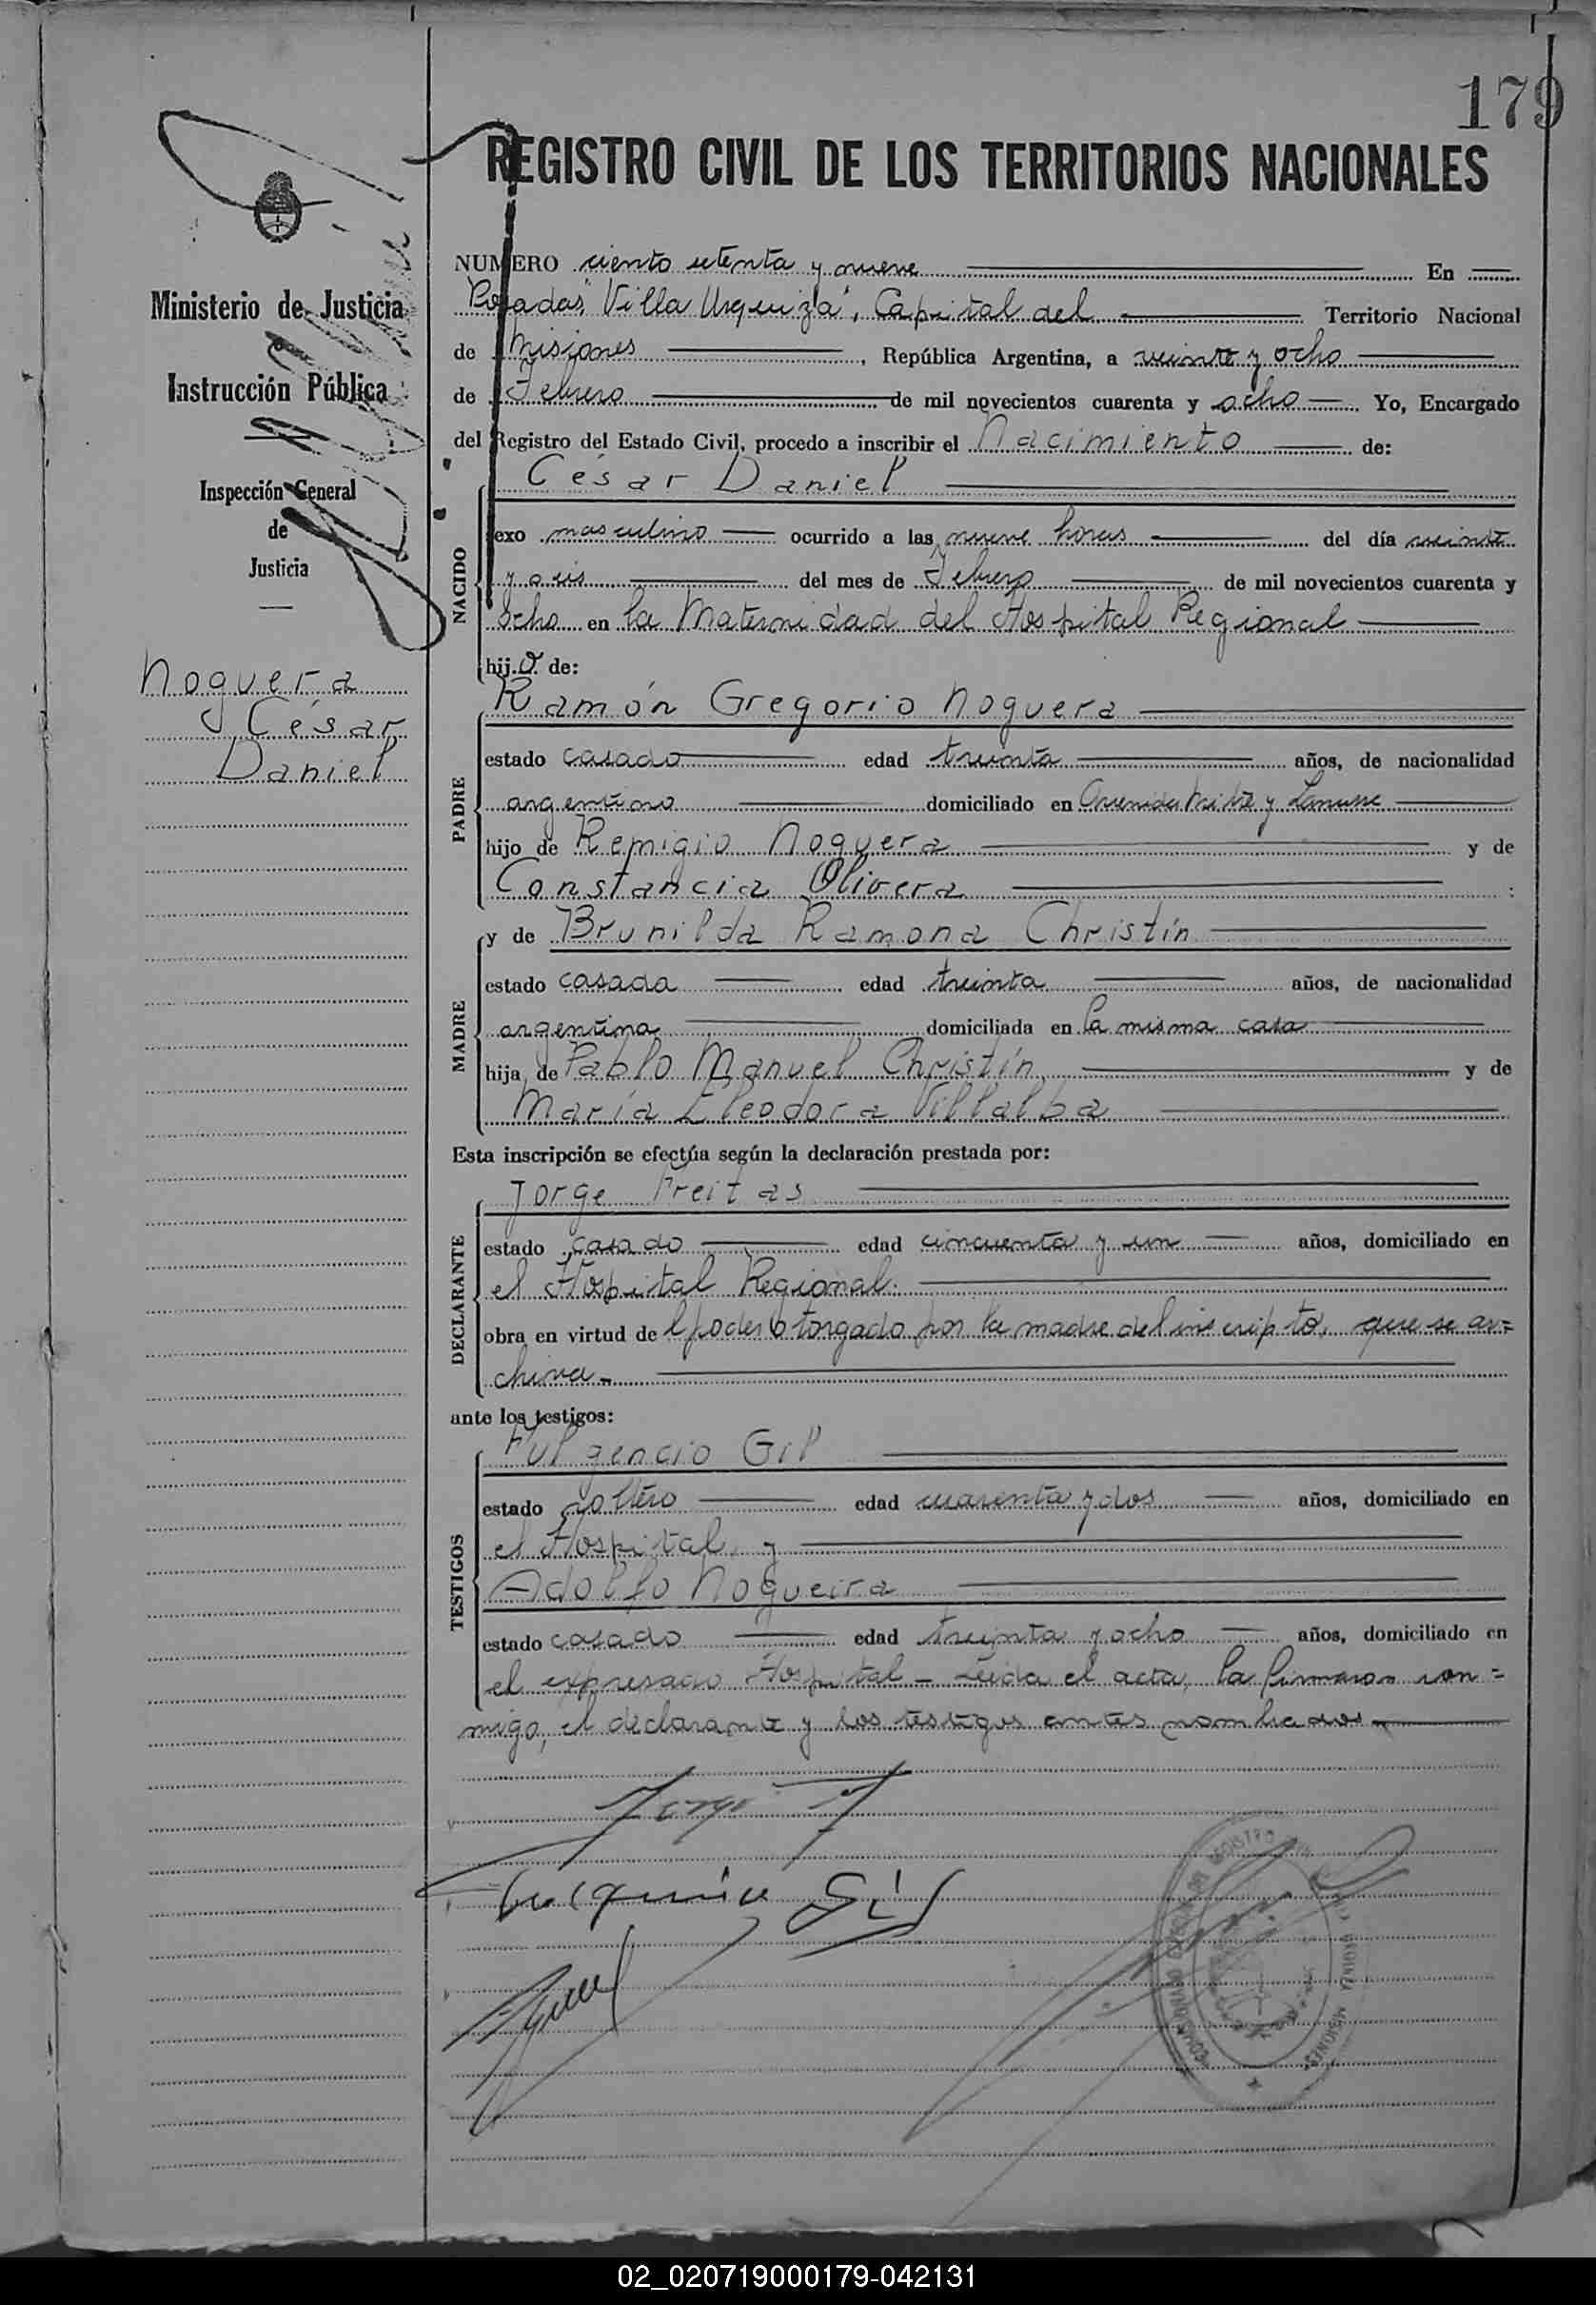 179
REGISTRO CIVIL DE LOS TERRITORIOS NACIONALES
Ministerio de Justicia
Instrucción Pública
Inspección General
de
Justicia
Noguera
César
Daniel
NUMERO ciento setenta y nueve En
Posadas, "Villa Urquiza", Capital del Territorio Nacional
de Misiones, República Argentina, a veinte y ocho
de Febrero de mil novecientos cuarenta y ocho Yo, Encargado
del Registro del Estado Civil, procedo a inscribir el Nacimiento de:
César Daniel
NACIDO
sexo masculino ocurrido a las nueve horas del día veinte
y seis del mes de Febrero de mil novecientos cuarenta y
ocho en la Maternidad del Hospital Regional
hijo de:
PADRE
Ramón Gregorio Noguera
estado casado edad treinta años, de nacionalidad
argentino domiciliado en Avenida Mitre y Lanusse
hijo de Remigio Noguera y de
Constancia Olivera
MADRE
y de Brunilda Ramona Christín
estado casada edad treinta años, de nacionalidad
argentina domiciliada en la misma casa
hija de Pablo Manuel Christín y de
María Eleodora Villalba
Esta inscripción se efectúa según la declaración prestada por:
DECLARANTE
Jorge Freitas
estado casado edad cincuenta y un años, domiciliado en
el Hospital Regional.
obra en virtud del poder otorgado por la madre del inscripto, que se ar=
chiva.-
ante los testigos:
TESTIGOS
Fulgencio Gil
estado soltero edad cuarenta y dos años, domiciliado en
el Hospital, y
Adolfo Nogueira
estado casado edad treinta y ocho años, domiciliado en
el expresado Hospital - Leída el acta, la firmaron con=
migo, el declarante y los testigos antes nombrados
Jorge F
Fulgencio Gil
REGISTRO
MISIONES
02_020719000179-042131